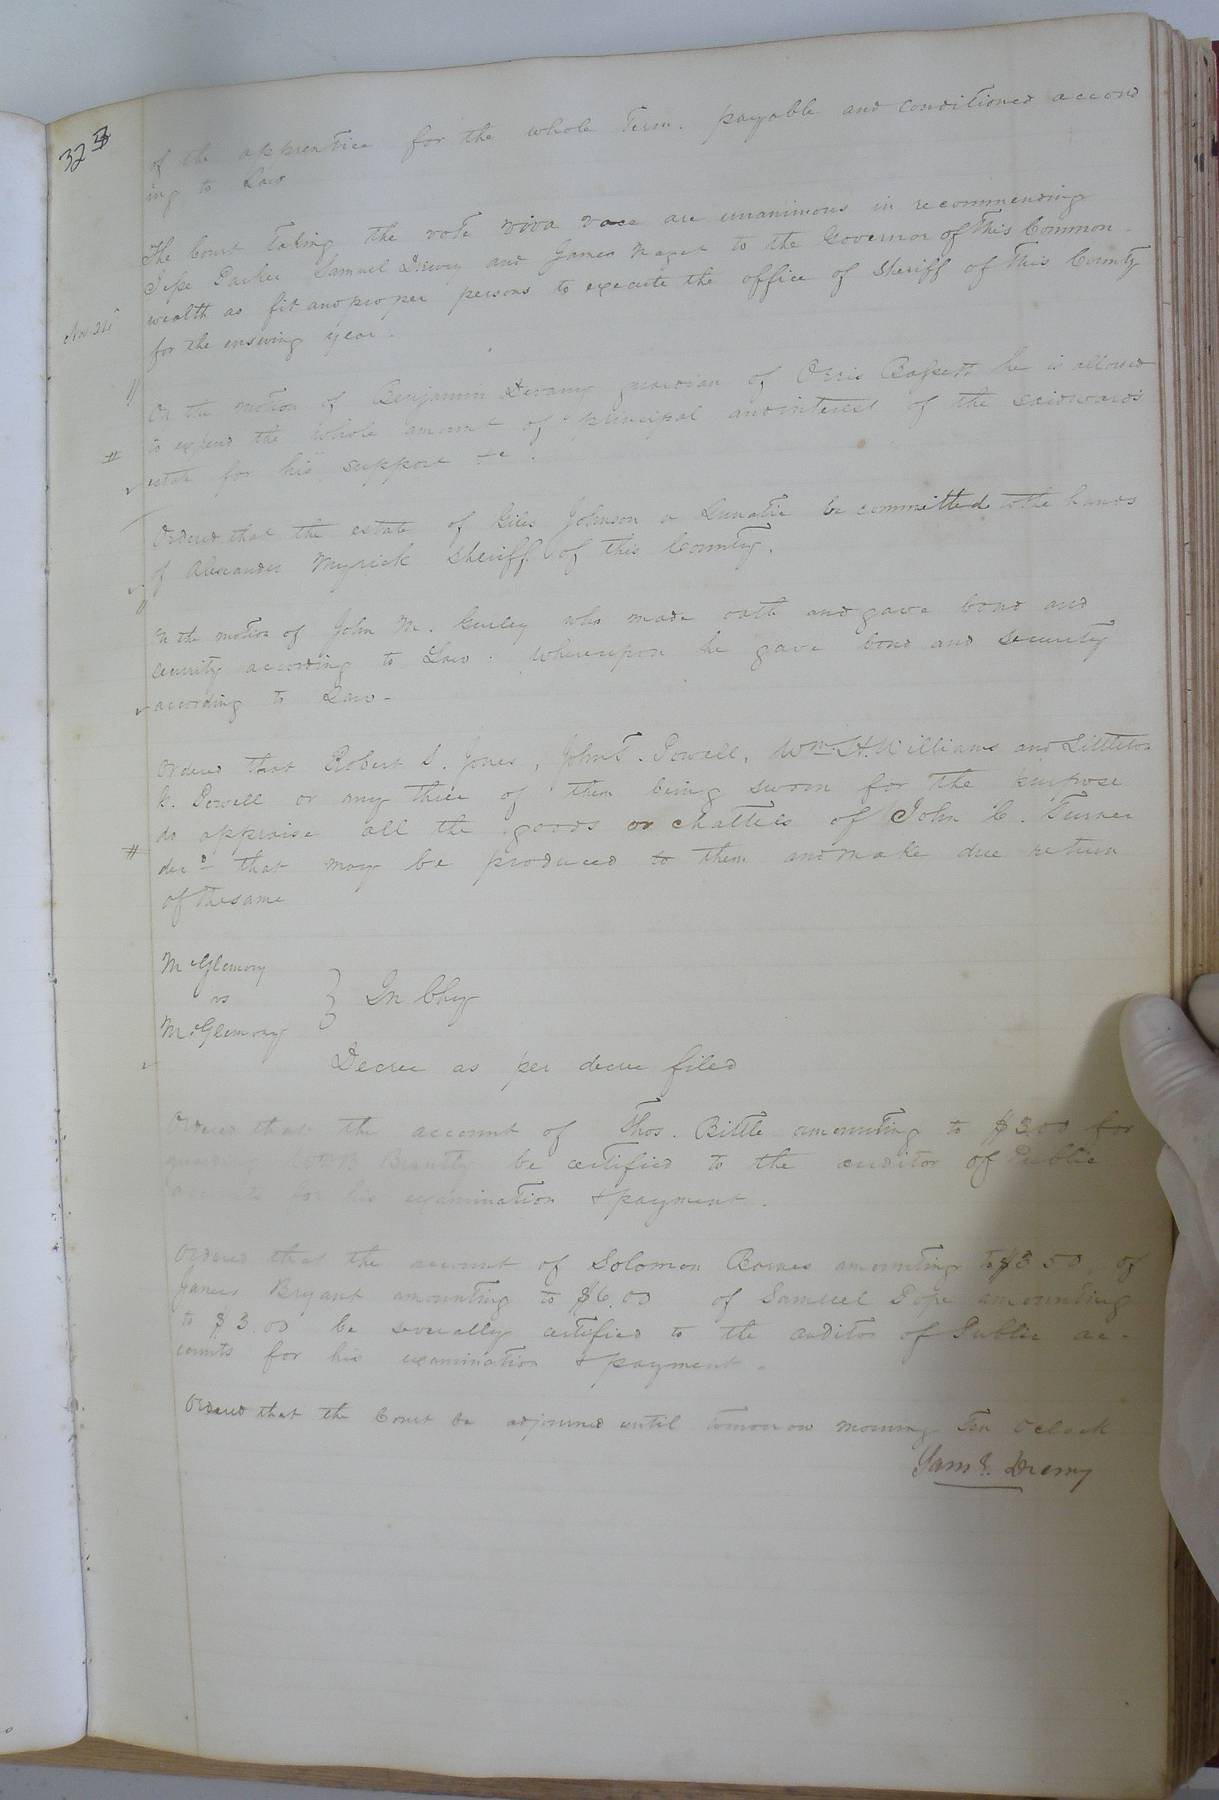 323
of the apprentice for the whole Term. payable and conditioned accord
ing to Law
The Court taking the vote viva voce are unanimous in recommending
Jesse Parker Samuel Drewry and James Maget to the Governor of this Common-
wealth as fit and proper persons to execute the office of Sheriff of this County
for the ensuing year.
Nov. 21st
On the motion of Benjamin Devany guardian of Orris Bassett he is allowed
to expend the whole amount of principal and interest of the said wards
estate for his support &c.
Ordered that the estate of Giles Johnson a Lunatic be committed to the hands
of Alexander Myrick sheriff of this County.
On the motion of John M. Gurley who made oath and gave bond and
security according to Law. Whereupon he gave bond and security
according to Law -
Ordered that Robert S. Jones, John T. Powell, Wm. H. Williams and Littleton
K. Powell or any three of them being sworn for the purpose
do appraise all the goods or chattels of John C. Turner
decd. that may be produced to them and make due return
of the same
McGlemory
vs } In Chy
McGlemory
Decree as per decree filed
Ordered that the account of Thos. Bittle amounting to $3.00 for
guarding Brantly be certified to the auditor of Public
accounts for his examination & payment.
Ordered that the account of Solomon Barnes amounting to $3.50, of
James Bryant amounting to $6.00 of Samuel Pope amounting
to $3.00 be severally certified to the auditor of Public ac-
counts for his examination & payment.
Ordered that the Court be adjourned until tomorrow morning Ten Oclock
Saml. Drewry